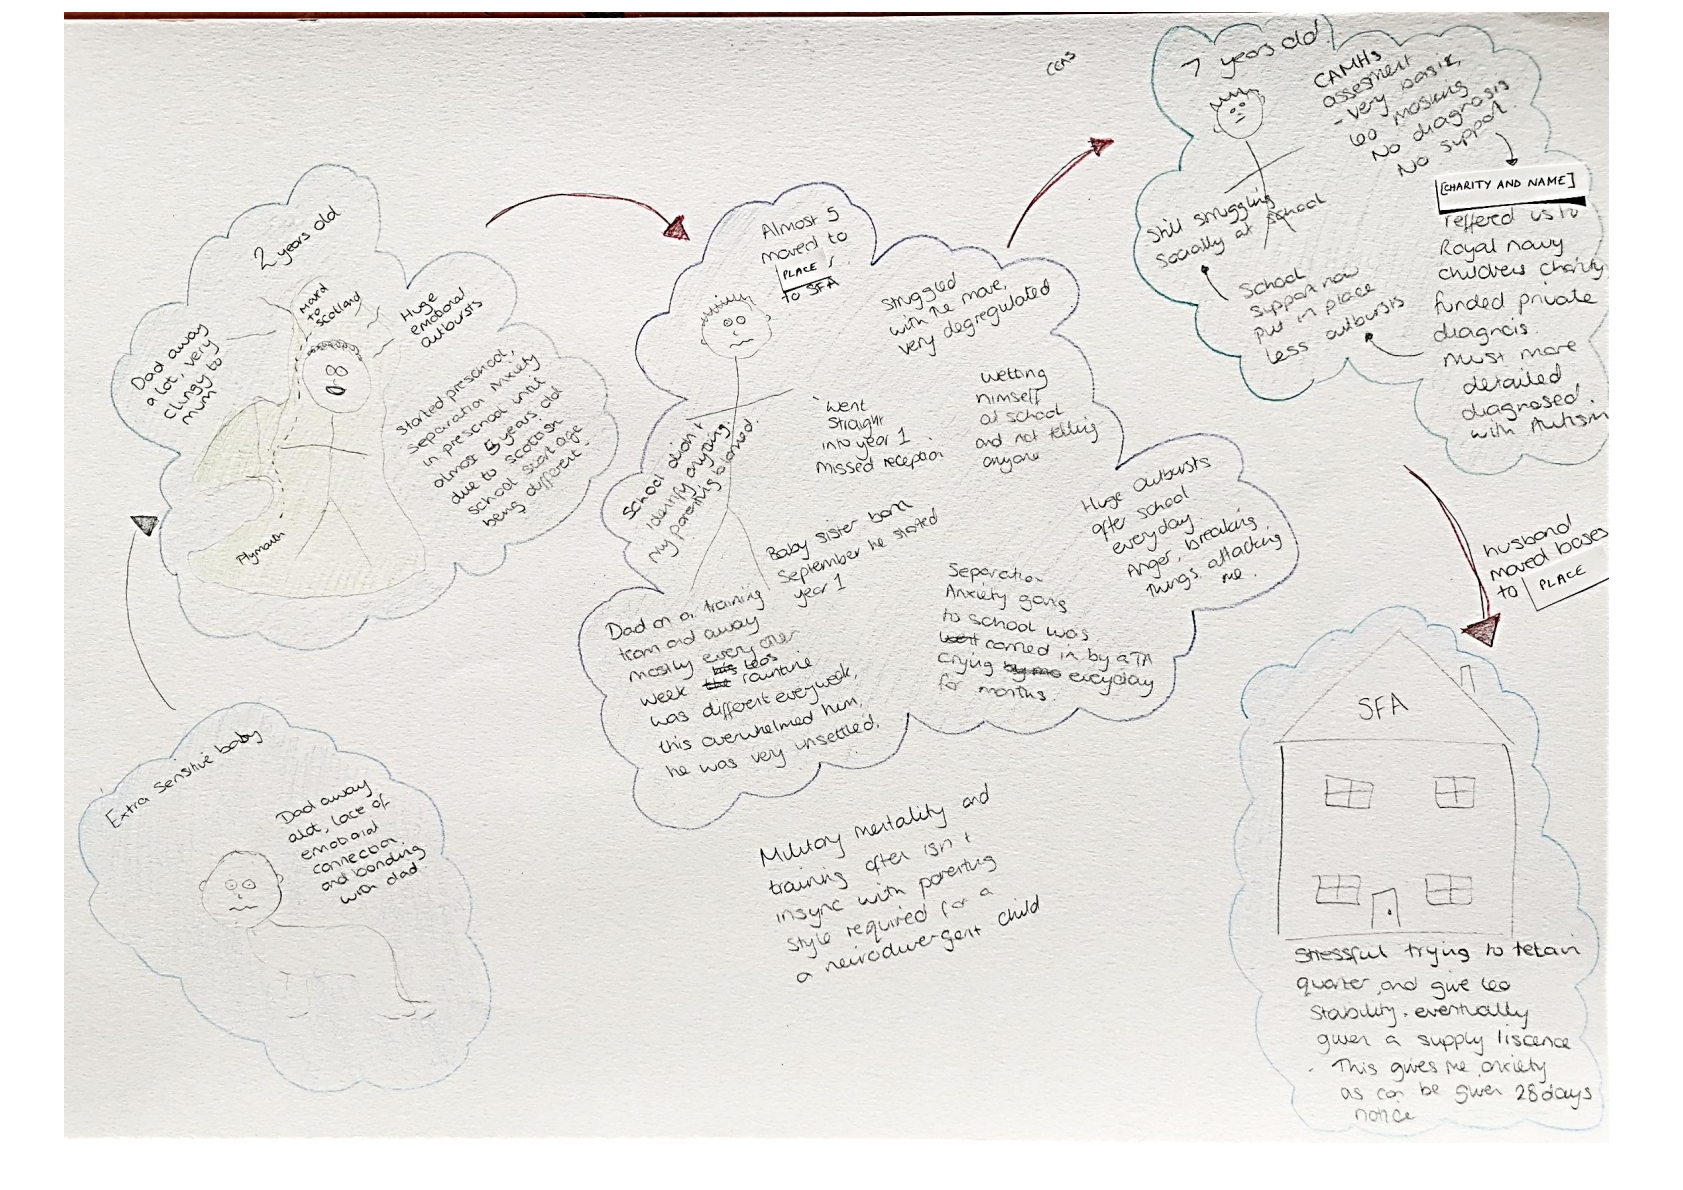 Extra Sensitive baby
Dad away
alot, lace of
emotional
connection
and bonding
with dad
2 years old
Moved
to
Scotland
Huge
emotional
outbursts
Dad away
a lot, very
clingy to
mum
Started preschool,
Separation Anxiety
in preschool until
almost 5 years old
due to scottish
school start age
being different.
Plymouth
Almost 5
moved to
PLACE
to SFA
Struggled
with the move,
very degregulated
Went
Straight
into year 1
Missed reception
Wetting
himself
at school
and not telling
anyone
School didn't
identify anything
my parenting blamed.
Baby sister born
September he started
year 1
Huge outbursts
after school
everyday
Anger, breaking
things, attacking
me.
Dad on a training
team and away
mostly every other
week his leos
the rountine
was different every week,
this overwhelmed him,
he was very unsettled.
Separation
Anxiety going
to school was
went carried in by a TA
crying by me everyday
for months.
Military mentality and
training often isn't
insync with parenting
style required for a
a neirodivergent child
CEAS
7 years old
CAMHs
assesment
- very basic,
Leo masking
No diagnosis
No support.
[CHARITY AND NAME]
reffered us to
Royal navy
childrens charity
funded private
diagnois
must more
detailed
diagnosed
with Autism
School
support now
put in place
less outbursts
Still struggling
Socially at school
husband
moved bases
to PLACE
SFA
Stressful trying to retain
quarter, and give Leo
Stability. eventually
given a supply liscence
- This gives me anxiety
as can be given 28 days
notice